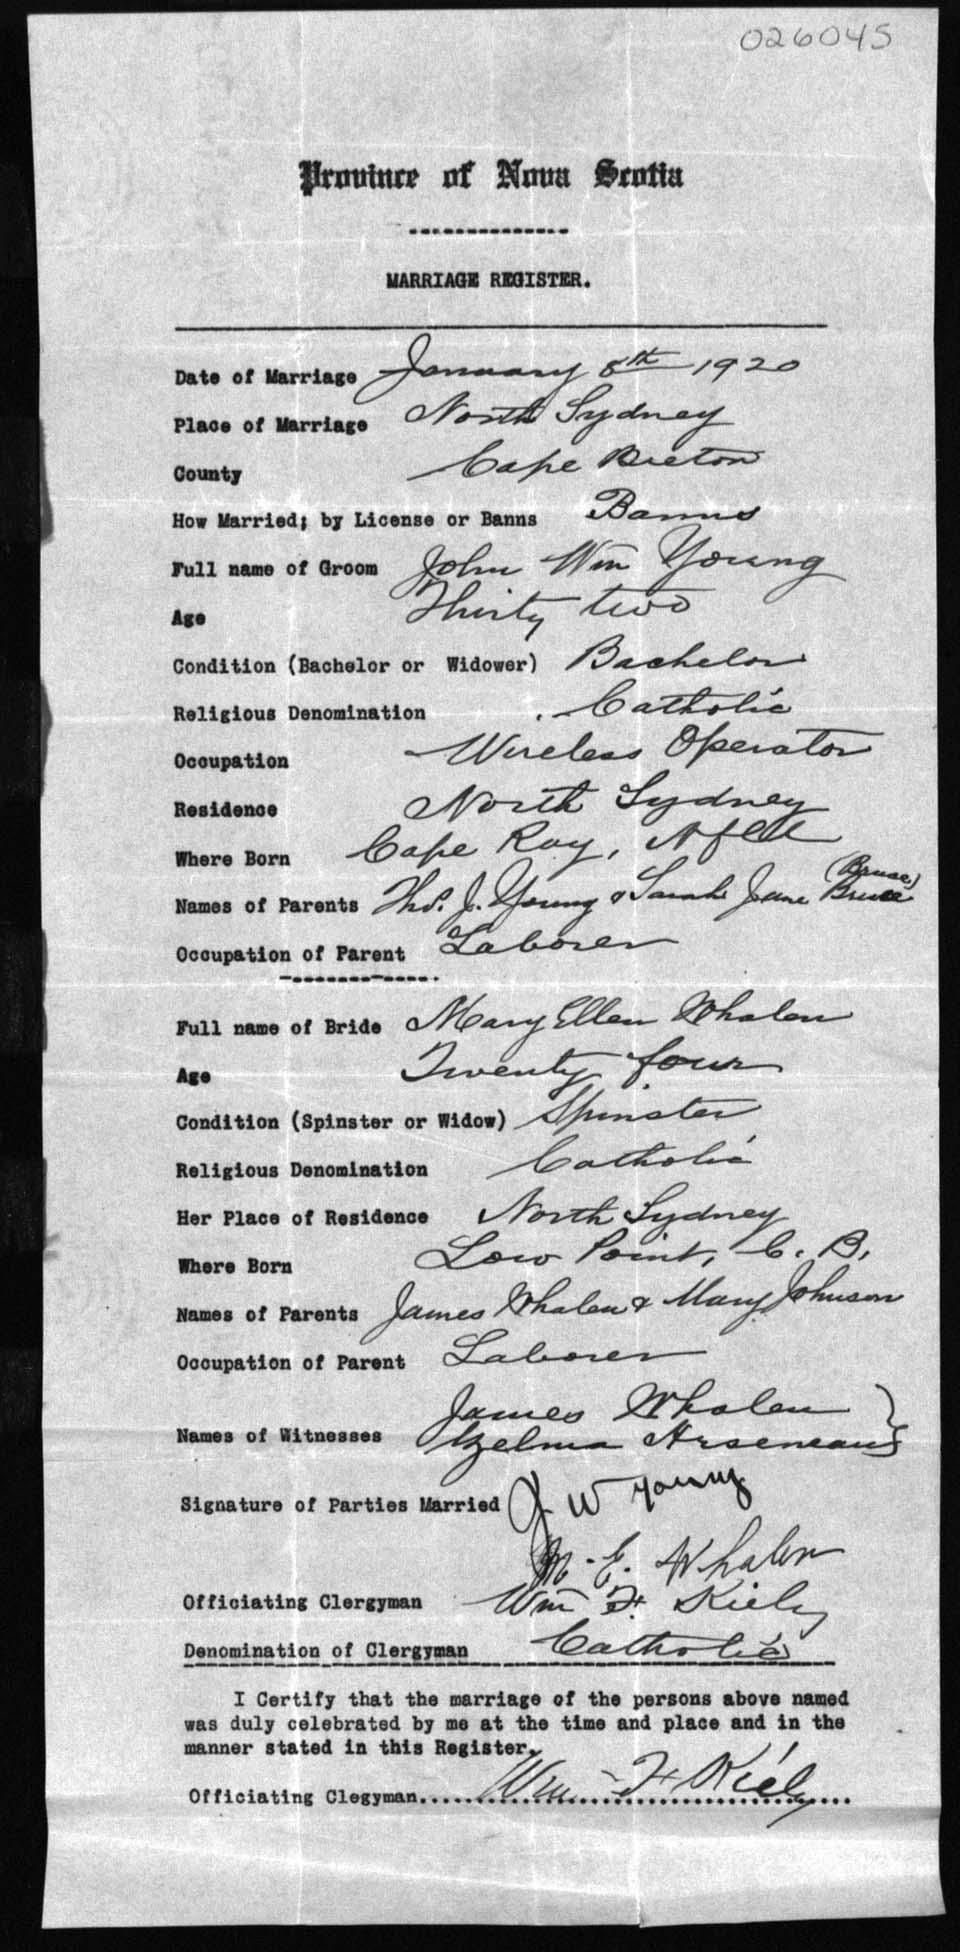 026045
Province of Nova Scotia
MARRIAGE REGISTER.
Date of Marriage January 8th 1920
Place of Marriage North Sydney
County Cape Breton
How Married; by License or Banns Banns
Full name of Groom John Wm Young
Age Thirty two
Condition (Bachelor or Widower) Bachelor
Religious Denomination Catholic
Occupation Wireless Operator
Residence North Sydney
Where Born Cape Ray, Nfld
(Bruce)
Names of Parents Thos. J. Young & Sarah Jane Bruce
Occupation of Parent Laborer
Full name of Bride Mary Ellen Whalen
Age Twenty four
Condition (Spinster or Widow) Spinster
Religious Denomination Catholic
Her Place of Residence North Sydney
Where Born Low Point, C. B.
Names of Parents James Whalen & Mary Johnson
Occupation of Parent Laborer
James Whalen
Names of Witnesses Zelma Arseneau
Signature of Parties Married J W Young
M. E. Whalen
Officiating Clergyman Wm F. Kiely
Denomination of Clergyman Catholic
I Certify that the marriage of the persons above named
was duly celebrated by me at the time and place and in the
manner stated in this Register.
Officiating Clegyman.... Wm F Kiely